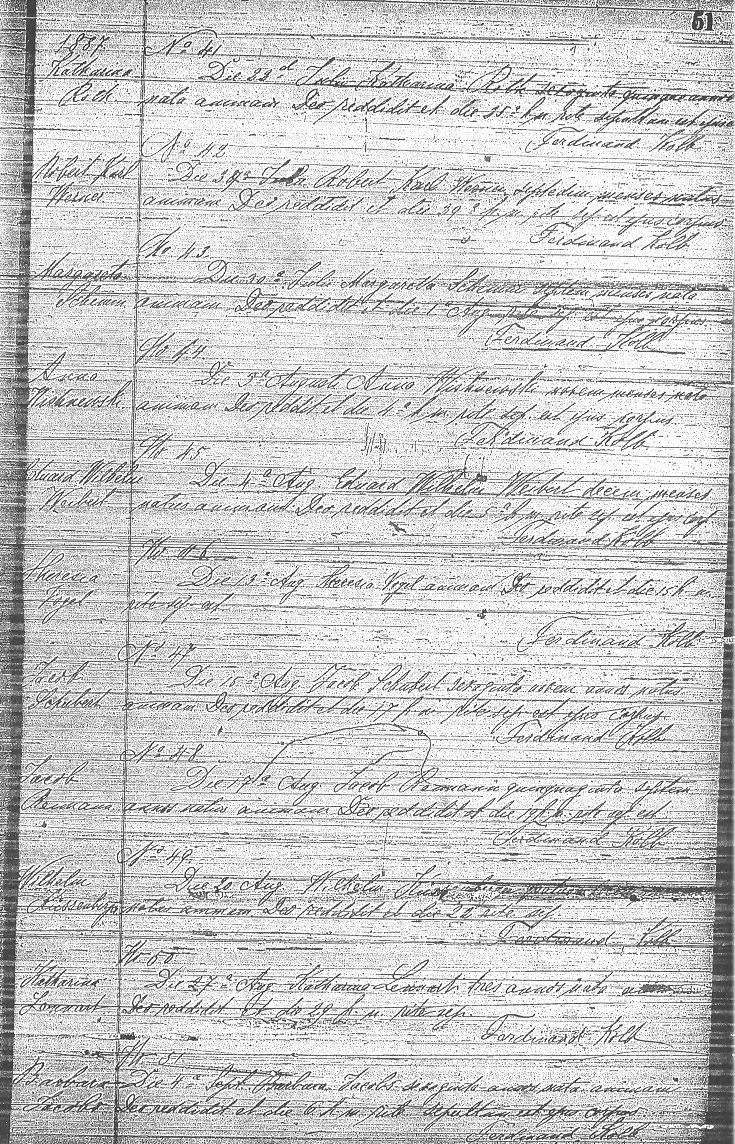 51
1887 No 41
Katharina Die 23a Julii Katharina Roth sexaginta quinque annos
Roth nata animam Deo reddidit et die 25a h. m. rite sepultum est ejus
Ferdinand Kolb
No 42
Robert Karl Die Julii Robert Karl Werner septedim menses natus
Werner animam Deo reddidit et die h. m. rite sep. est ejus corpus
Ferdinand Kolb
No 43
Margareta Die 30a Julii Margaretta septem menses nata
animam Deo reddidit et die 1a Aug. rite sep. est ejus corpus.
Ferdinand Kolb
No 44
Anna Die 3a Augusti Anna novem menses nata
animam Deo reddidit et die 4a h. m. rite sep. est ejus corpus
Ferdinand Kolb
No 45
Eduard Wilhelm Die 4a Aug. Eduard Wilhelm Weibert decem menses
Weibert natus animam Deo reddidit et die 5a h. m. rite sep. est ejus corp.
Ferdinand Kolb
No 46
Theresia Die 13a Aug. Theresia Vogel animam Deo reddidit et die 15 h. m.
Vogel rite sep. est
Ferdinand Kolb
No 47
Jacob Die 15a Aug. Jacob Schubert sexaginta novem annos natus
Schubert animam Deo reddidit et die 17 h. m. rite sep. est ejus corpus
Ferdinand Kolb
No 48
Jacob Die 17a Aug. Jacob Reimann quinquaginta septem
Reimann annos natus animam Deo reddidit et die h. m. rite sep. est
Ferdinand Kolb
No 49
Wilhelm Die 20 Aug. Wilhelm
natus animam Deo reddidit et die 22 rite sep.
Ferdinand Kolb
No 50
Katharina Die 27a Aug. Katharina Lennart tres annos nata
Lennart Deo reddidit et die 29 h. m. rite sep.
Ferdinand Kolb
No 51
Barbara Die 4a Sept. Barbara Jacobs sexaginta annos nata animam
Jacobs Deo reddidit et die 6 h. m. rite sepultum est ejus corpus
Ferdinand Kolb